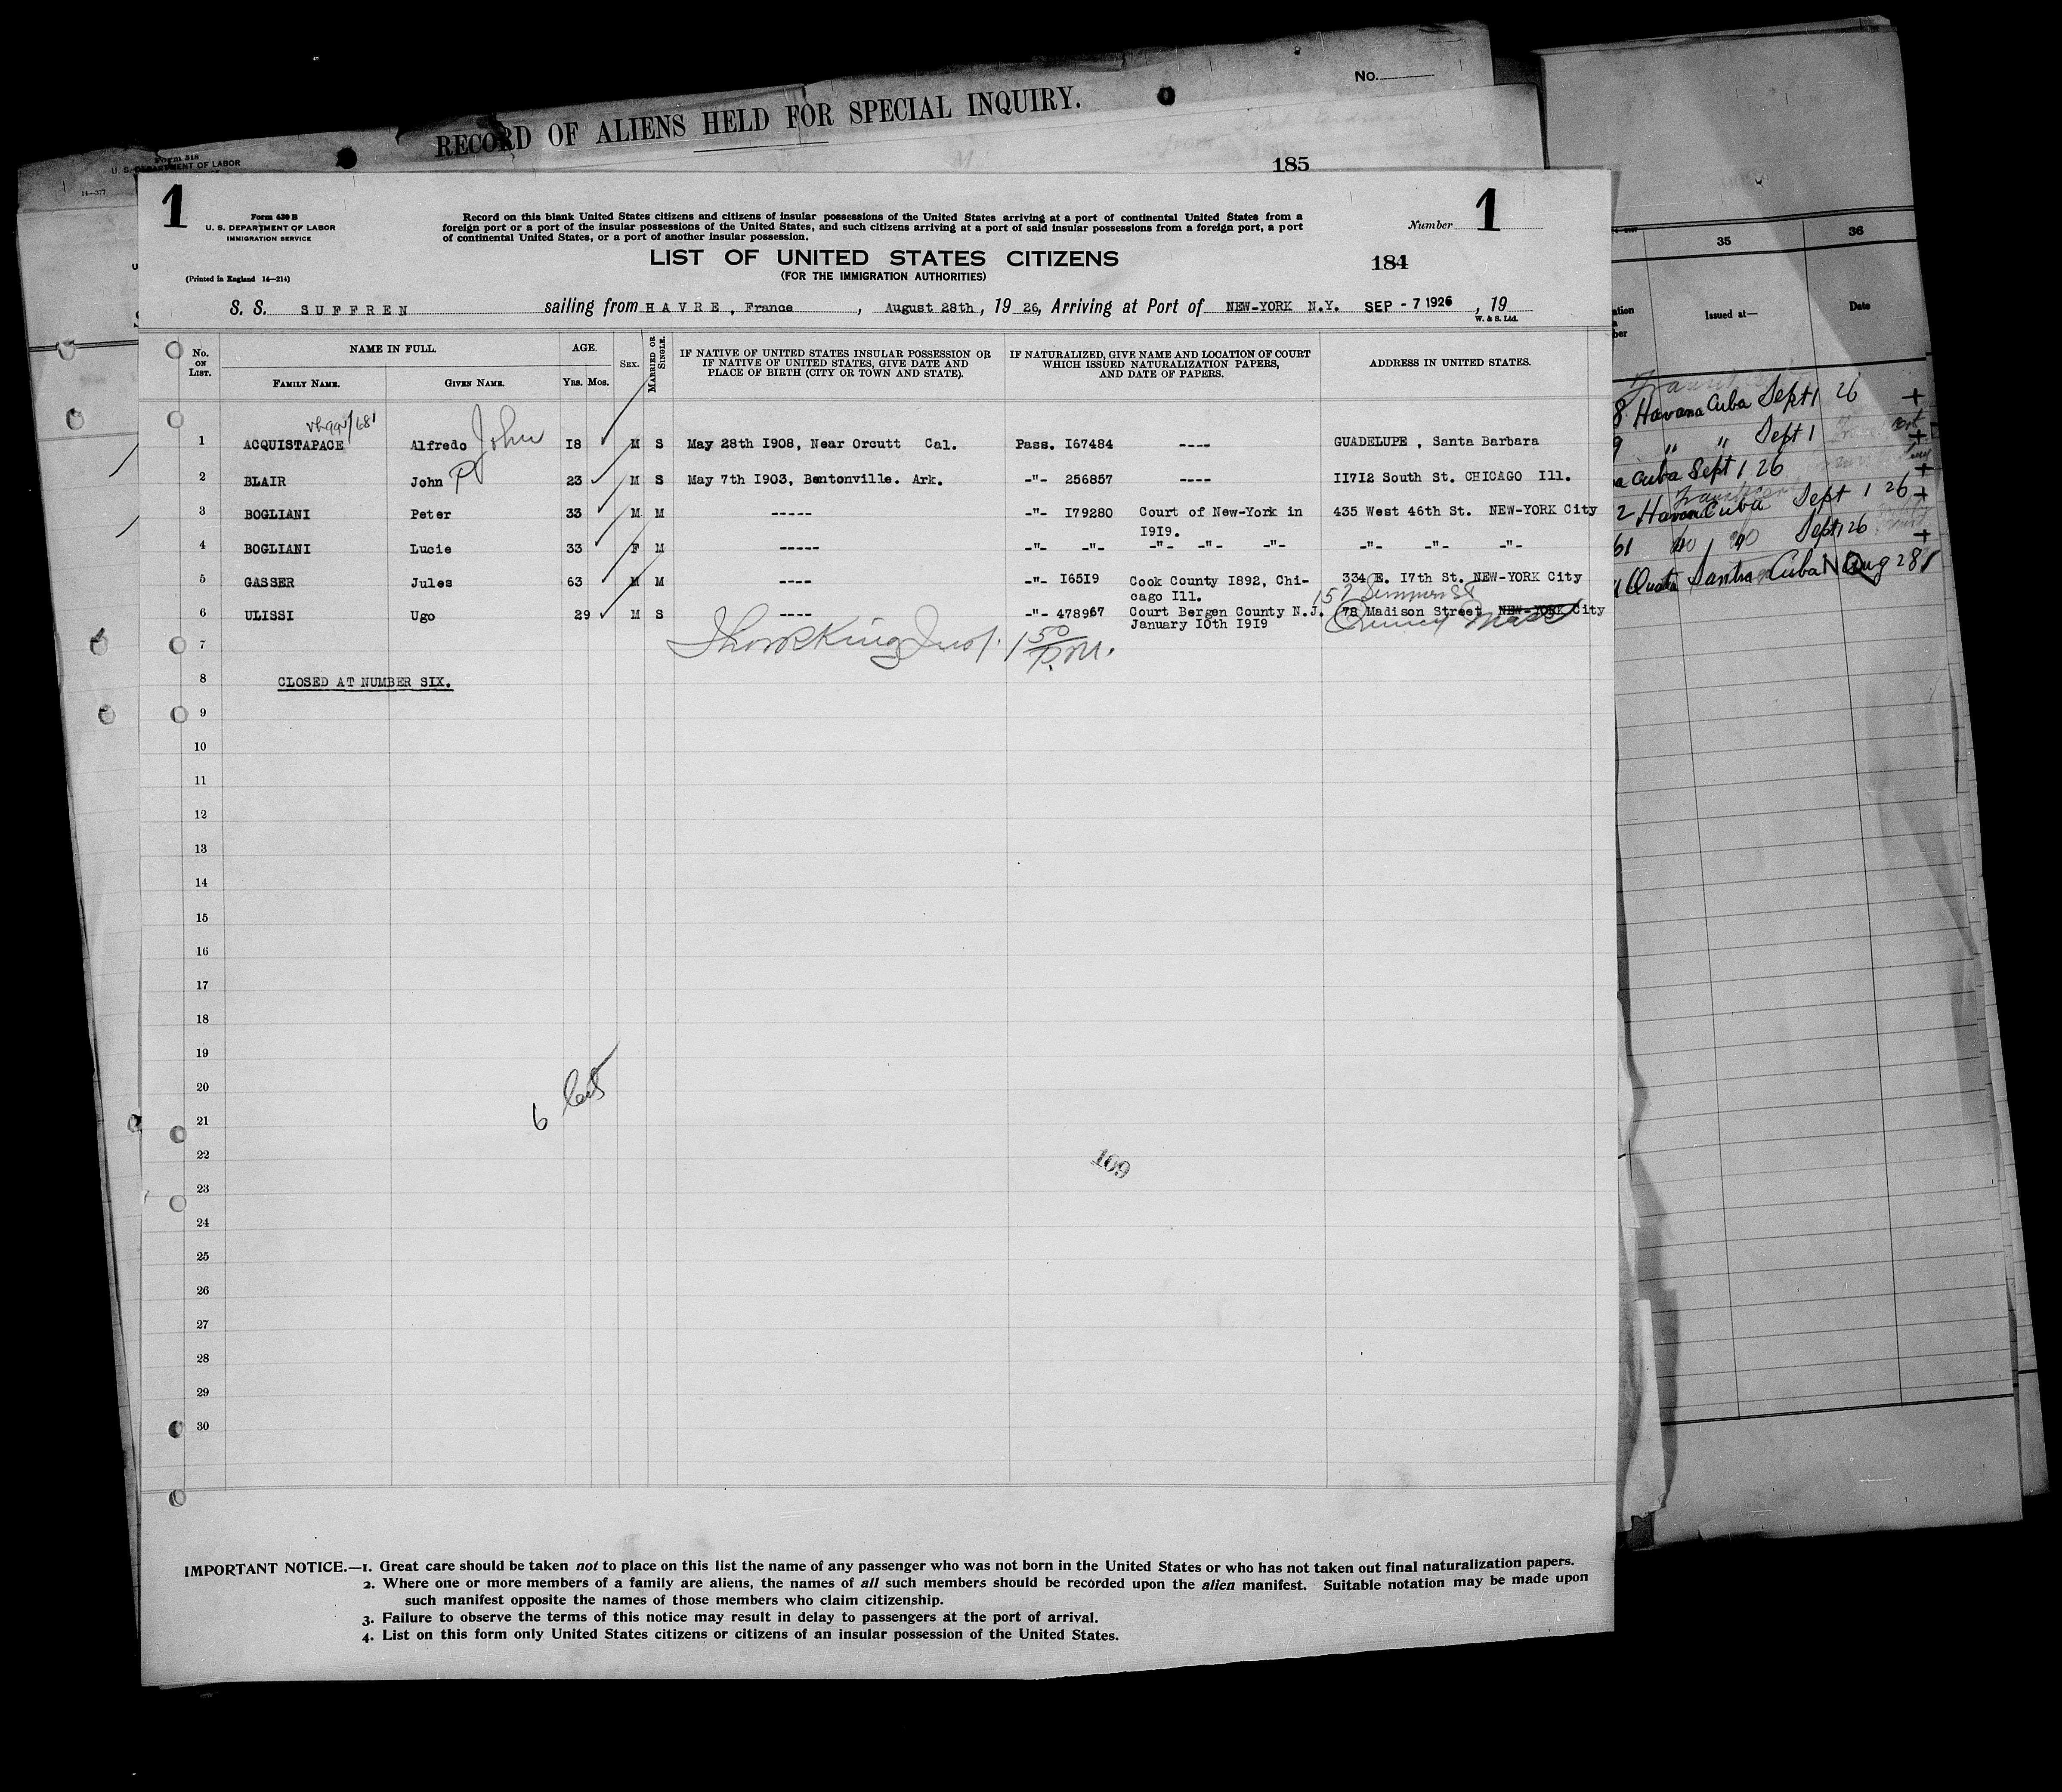 No.
RECORD OF ALIENS HELD FOR SPECIAL INQUIRY.
Form 518
U. S. DEPARTMENT OF LABOR
14—377
185
1
Form 630 B
U. S. DEPARTMENT OF LABOR
IMMIGRATION SERVICE
(Printed in England 14—214)
Record on this blank United States citizens and citizens of insular possessions of the United States arriving at a port of continental United States from a
foreign port or a port of the insular possessions of the United States, and such citizens arriving at a port of said insular possessions from a foreign port, a port
of continental United States, or a port of another insular possession.
Number 1
LIST OF UNITED STATES CITIZENS
(FOR THE IMMIGRATION AUTHORITIES)
184
S. S. SUFFREN sailing from HAVRE, France, August 28th, 1926, Arriving at Port of NEW-YORK N.Y. SEP - 7 1926, 19
W. & S. Ltd.
No. ON LIST.
NAME IN FULL.
FAMILY NAME. GIVEN NAME.
AGE.
Yrs. Mos.
SEX.
MARRIED OR SINGLE.
IF NATIVE OF UNITED STATES INSULAR POSSESSION OR
IF NATIVE OF UNITED STATES, GIVE DATE AND
PLACE OF BIRTH (CITY OR TOWN AND STATE).
IF NATURALIZED, GIVE NAME AND LOCATION OF COURT
WHICH ISSUED NATURALIZATION PAPERS,
AND DATE OF PAPERS.
ADDRESS IN UNITED STATES.
1 ACQUISTAPACE Alfredo John I8 M S May 28th I908, Near Orcutt Cal. Pass. I67484 ---- GUADELUPE , Santa Barbara
2 BLAIR John P 23 M S May 7th I903, Bentonville. Ark. -"- 256857 ---- II7I2 South St. CHICAGO Ill.
3 BOGLIANI Peter 33 M M ----- -"- I79280 Court of New-York in 435 West 46th St. NEW-YORK City
I9I9.
4 BOGLIANI Lucie 33 F M ----- -"- -"- -"- -"- -"- -"- -"- -"-
5 GASSER Jules 63 M M ---- -"- I65I9 Cook County I892, Chi- 334 E. I7th St. NEW-YORK City
cago Ill.
6 ULISSI Ugo 29 M S ---- -"- 478967 Court Bergen County N.J. 78 Madison Street NEW-YORK City
January I0th I9I9
Quincy Mass
7
8 CLOSED AT NUMBER SIX.
9
10
11
12
13
14
15
16
17
18
19
20
21
22
23
24
25
26
27
28
29
30
6
109
IMPORTANT NOTICE.—1. Great care should be taken not to place on this list the name of any passenger who was not born in the United States or who has not taken out final naturalization papers.
2. Where one or more members of a family are aliens, the names of all such members should be recorded upon the alien manifest. Suitable notation may be made upon
such manifest opposite the names of those members who claim citizenship.
3. Failure to observe the terms of this notice may result in delay to passengers at the port of arrival.
4. List on this form only United States citizens or citizens of an insular possession of the United States.
35 36
Issued at— Date
8 Havana Cuba Sept 1 26 +
9 " " Sept 1 +
Cuba Sept 1 26 +
2 Havana Cuba Sept 1 26 +
61 Sept 1 26 +
Cuba Aug 28